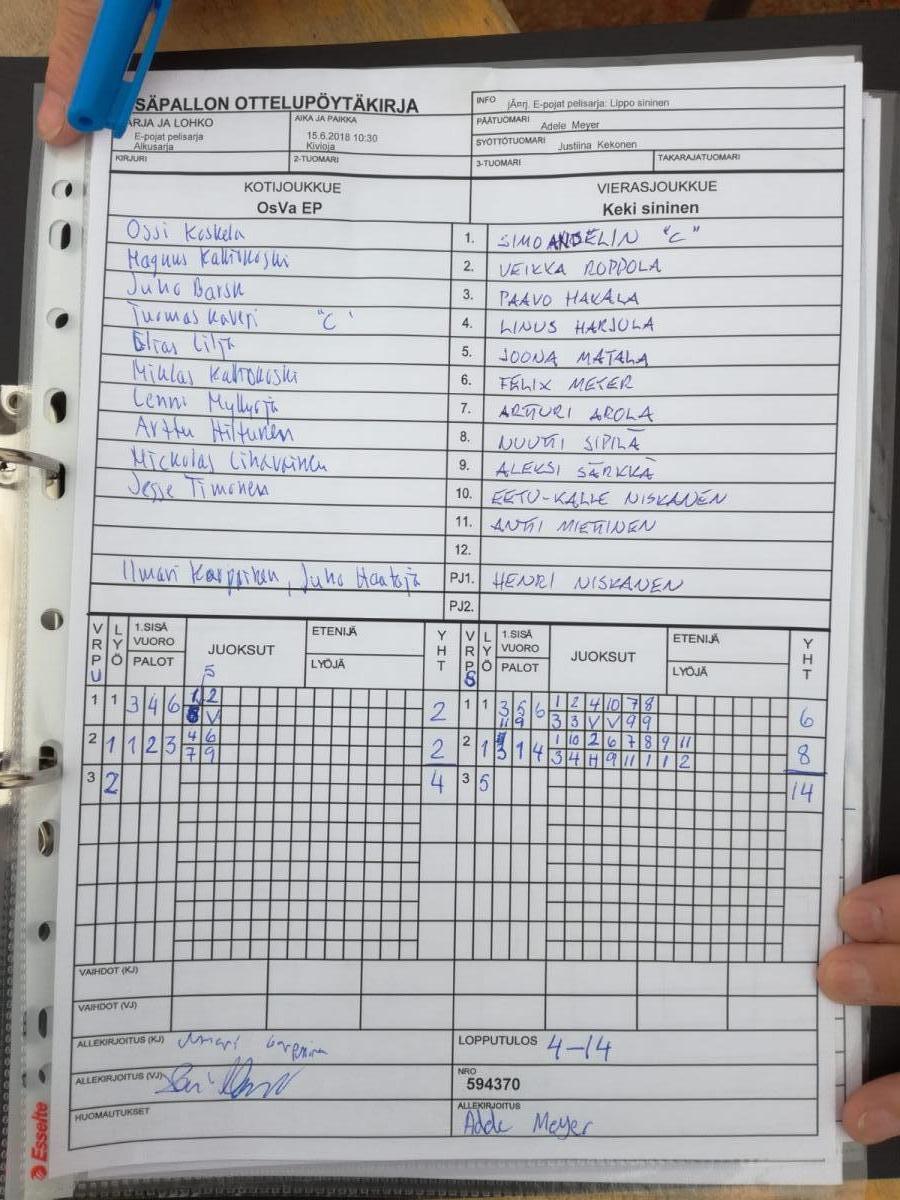 SÄPALLON OTTELUPÖYTÄKIRJA
ARJA JA LOHKO
E-pojat pelisarja
Alkusarja
AIKA JA PAIKKA
15.6.2018 10:30
Kivioja
KIRJURI
2-TUOMARI
INFO jÄnrj. E-pojat pelisarja: Lippo sininen
PÄÄTUOMARI Adele Meyer
SYÖTTÖTUOMARI Justiina Kekonen
3-TUOMARI
TAKARAJATUOMARI
KOTIJOUKKUE
OsVa EP
VIERASJOUKKUE
Keki sininen
Ossi Koskela 1. SIMO ANDELIN "C"
Magnus Kalliokoski 2. VEIKKA ROPPOLA
Juho Barsk 3. PAAVO HAKALA
Tuomas Kaveri "C" 4. LINUS HARJULA
Elias Lilja 5. JOONA MATALA
Miklas Kalliokoski 6. FELIX MEYER
Lenni Myllyoja 7. ARTTURI AROLA
Arttu Hiltunen 8. NUUTTI SIPILÄ
Mickolas Lihavainen 9. ALEKSI SÄRKKÄ
Jesse Timonen 10. EETU-KALLE NISKANEN
11. ANTTI MIETTINEN
12.
Ilmari Karppinen, Juho Haataja PJ1. HENRI NISKANEN
PJ2.
VRP U LYÖ 1.SISÄ VUORO PALOT JUOKSUT ETENIJÄ LYÖJÄ YHT VRP S LYÖ 1.SISÄ VUORO PALOT JUOKSUT ETENIJÄ LYÖJÄ YHT
5
1 1 3 4 6 1 2 2 1 1 3 5 6 1 2 4 10 7 8 6
V 11 9 3 3 V V 9 9
2 1 1 2 3 4 6 2 2 1 3 1 4 1 10 2 6 7 8 9 11 8
7 9 3 4 H 9 11 1 1 2
3 2 4 3 5 14
VAIHDOT (KJ)
VAIHDOT (VJ)
ALLEKIRJOITUS (KJ)
LOPPUTULOS 4-14
ALLEKIRJOITUS (VJ)
NRO
594370
HUOMAUTUKSET
ALLEKIRJOITUS
Adele Meyer
Esselte